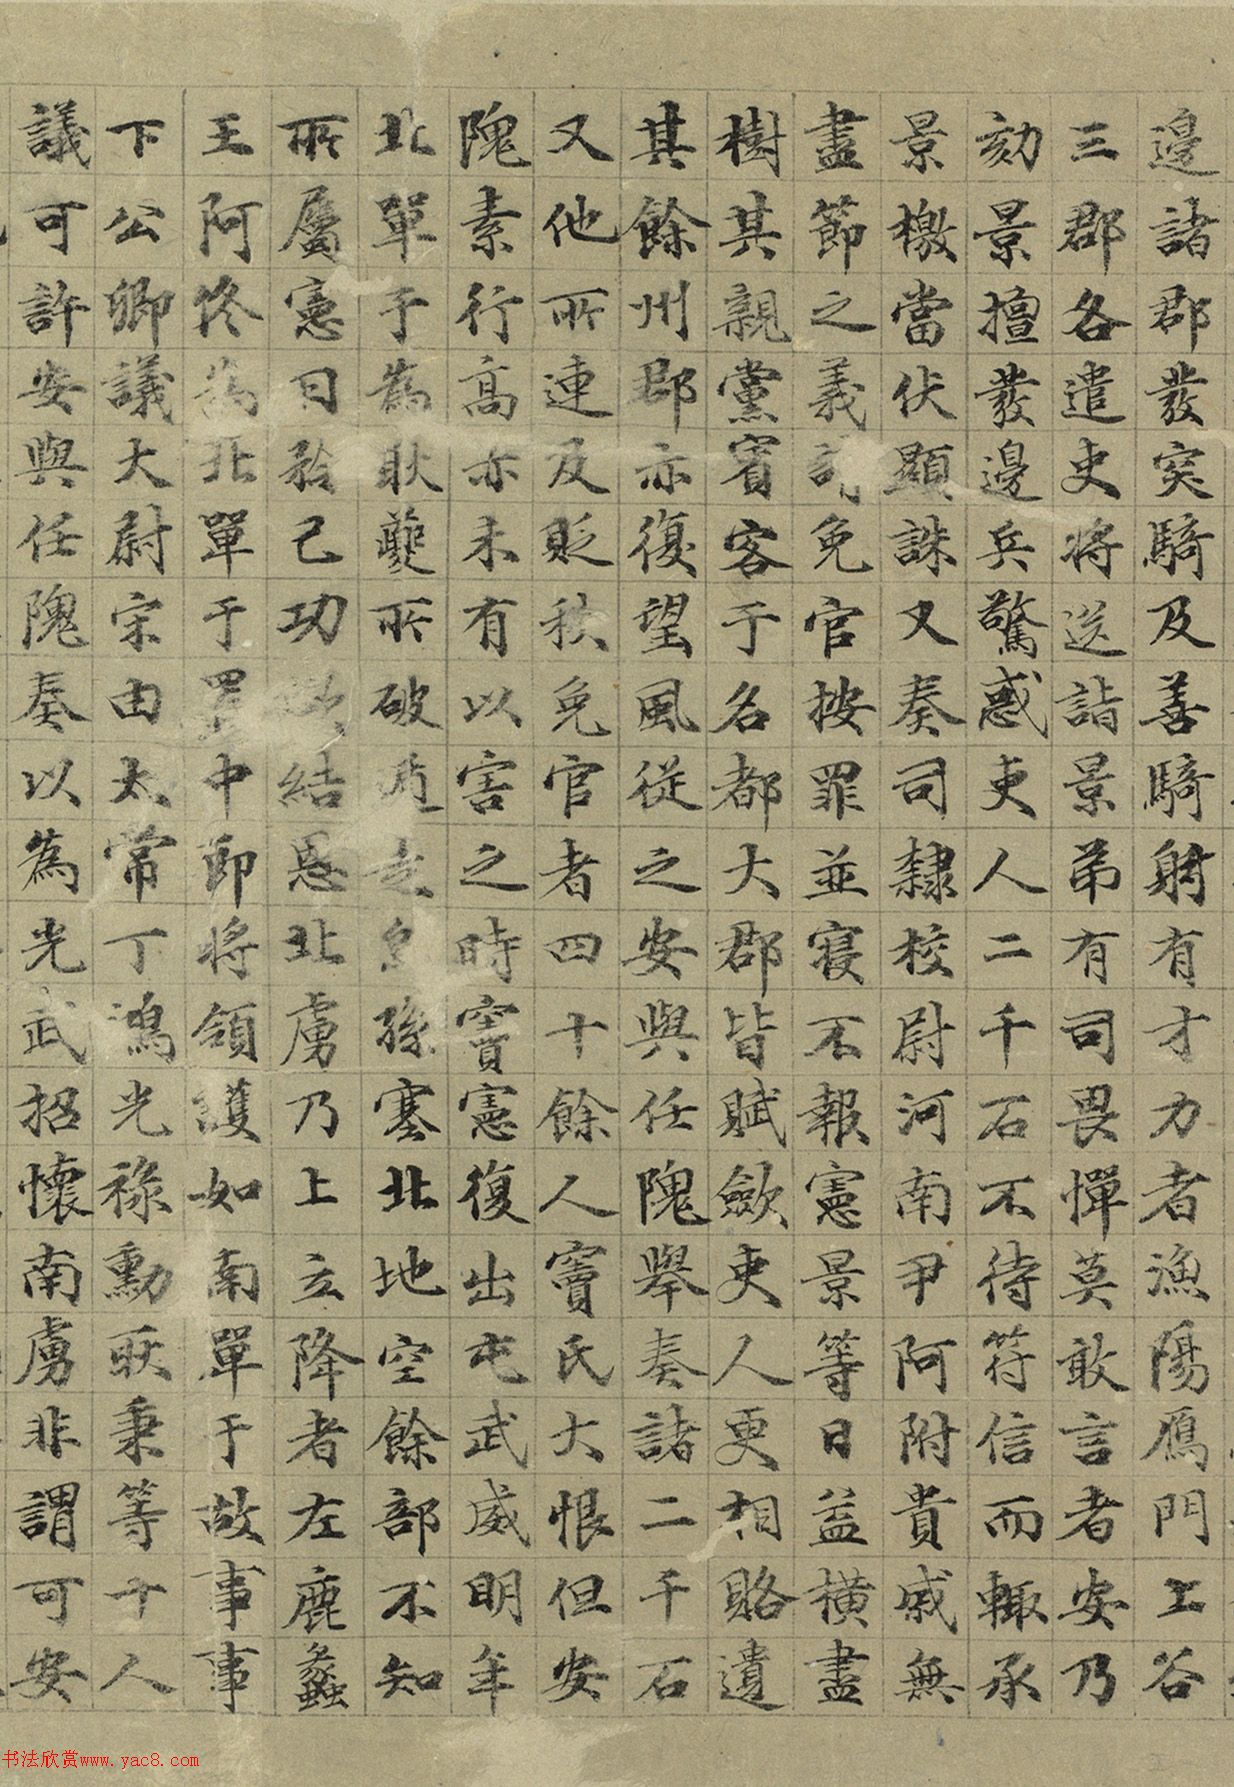 邊諸郡發突騎及善騎射有才力者漁陽鴈門上谷
三郡各遣吏將送詣景弟有司畏憚莫敢言者安乃
劾景擅發邊兵驚惑吏人二千石不待符信而輙承
景檄當伏顯誅又奏司隸校尉河南尹阿附貴戚無
盡節之義請免官按罪並寢不報憲景等日益橫盡
樹其親黨賓客于名都大郡皆賦斂吏人更相賂遺
其餘州郡亦復望風從之安與任隗舉奏諸二千石
又他所連及貶秩免官者四十餘人竇氏大恨但安
隗素行高亦未有以害之時竇憲復出屯武威明年
北單于為耿夔所破遁走烏孫塞北地空餘部不知
所屬憲日矜己功欲結恩北虜乃上立降者左鹿蠡
王阿佟為北單于置中郎將領護如南單于故事事
下公卿議大尉宋由太常丁鴻光祿勳耿秉等十人
議可許安與任隗奏以為光武招懷南虜非謂可安
书法欣赏www.yac8.com